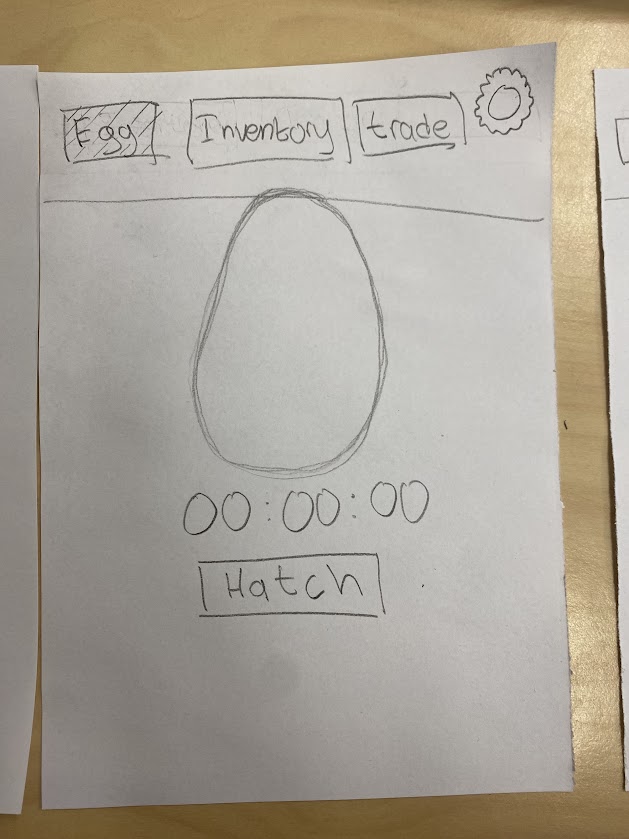 Egg Inventory trade
00:00:00
Hatch